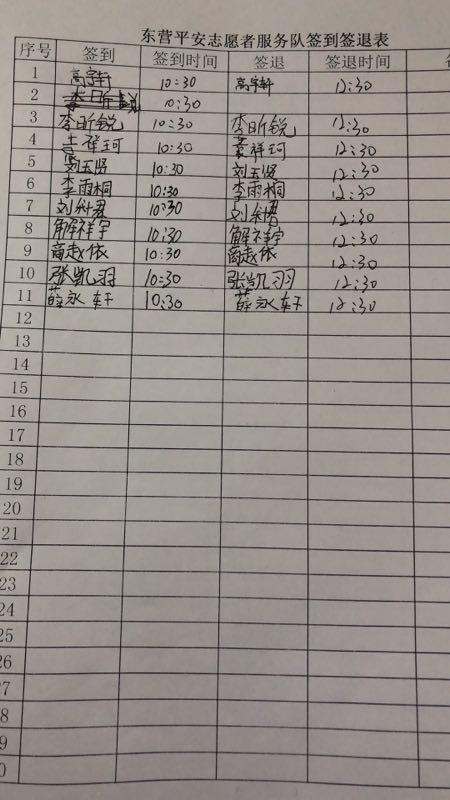 东营平安志愿者服务队签到签退表
序号 签到 签到时间 签退 签退时间
1 高宇轩 10:30 高宇轩 12:30
2 10:30
3 李昕锐 10:30 李昕锐 12:30
4 祥珂 10:30 祥珂 12:30
5 刘五贤 10:30 刘五贤 12:30
6 李雨桐 10:30 李雨桐 12:30
7 刘 君 10:30 刘 君 12:30
8 解祥宇 10:30 解祥宇 12:30
9 商赵依 10:30 商赵依 12:30
10 张凯羽 10:30 张凯羽 12:30
11 薛永轩 10:30 薛永轩 12:30
12
13
14
15
16
17
18
19
20
21
22
23
24
25
26
27
8
9
0